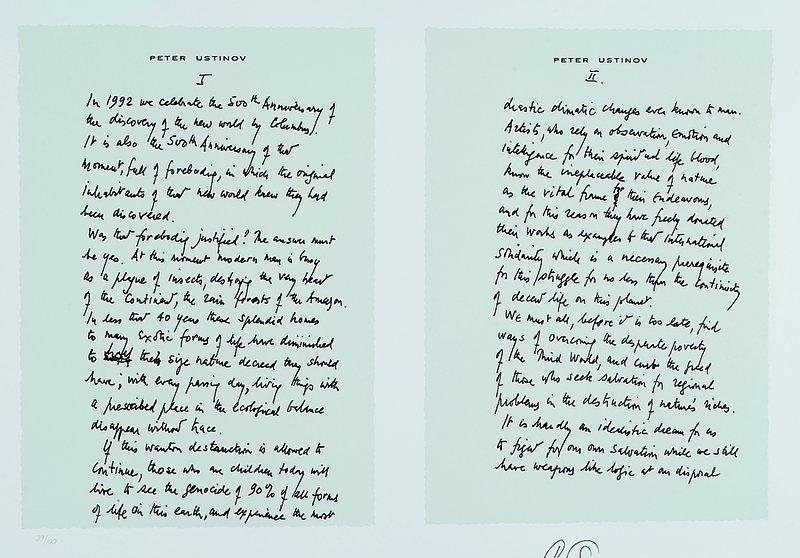 PETER USTINOV
I
In 1992 we celebrate the 500th Anniversary of
the discovery of the new world by Columbus.
It is also the 500th Anniversary of that
moment, full of forebodig, in which the original
inhabitants of that new world knew they had
been discovered.
Was that forebodig justified? The answer must
be yes. At this moment modern man is busy
as a plague of insects, destroying the very heart
of the Continent, the rain forests of the Amazon.
In less that 40 years these splendid homes
to many exotic forms of life have diminished
to size nature decreed they should
have; with every passing day, living things with
a prescribed place in the ecological balance
disappear without trace.
If this wanton destruction is allowed to
continue, those who are children today will
live to see the genocide of 90% of all forms
of life on this earth, and experience the most
39/100
PETER USTINOV
II.
drastic climatic changes ever known to man.
Artists, who rely on observation, Emotion and
intelligence for their spiritual life blood,
know the irreplaceable value of nature
as the vital frame for their Endeavours,
and for this reason they have freely donated
their works as examples to that International
solidarity which is a necessary prerequisite
for this struggle for no less than the continuity
of decent life on this planet.
We must all, before it is too late, find
ways of overcoming the desperate poverty
of the Third World, and curb the greed
of those who seek salvation for regional
problems in the destruction of nature's riches.
It is hardly an idealistic dream for us
to fight for our own salvation while we still
have weapons like logic at our disposal